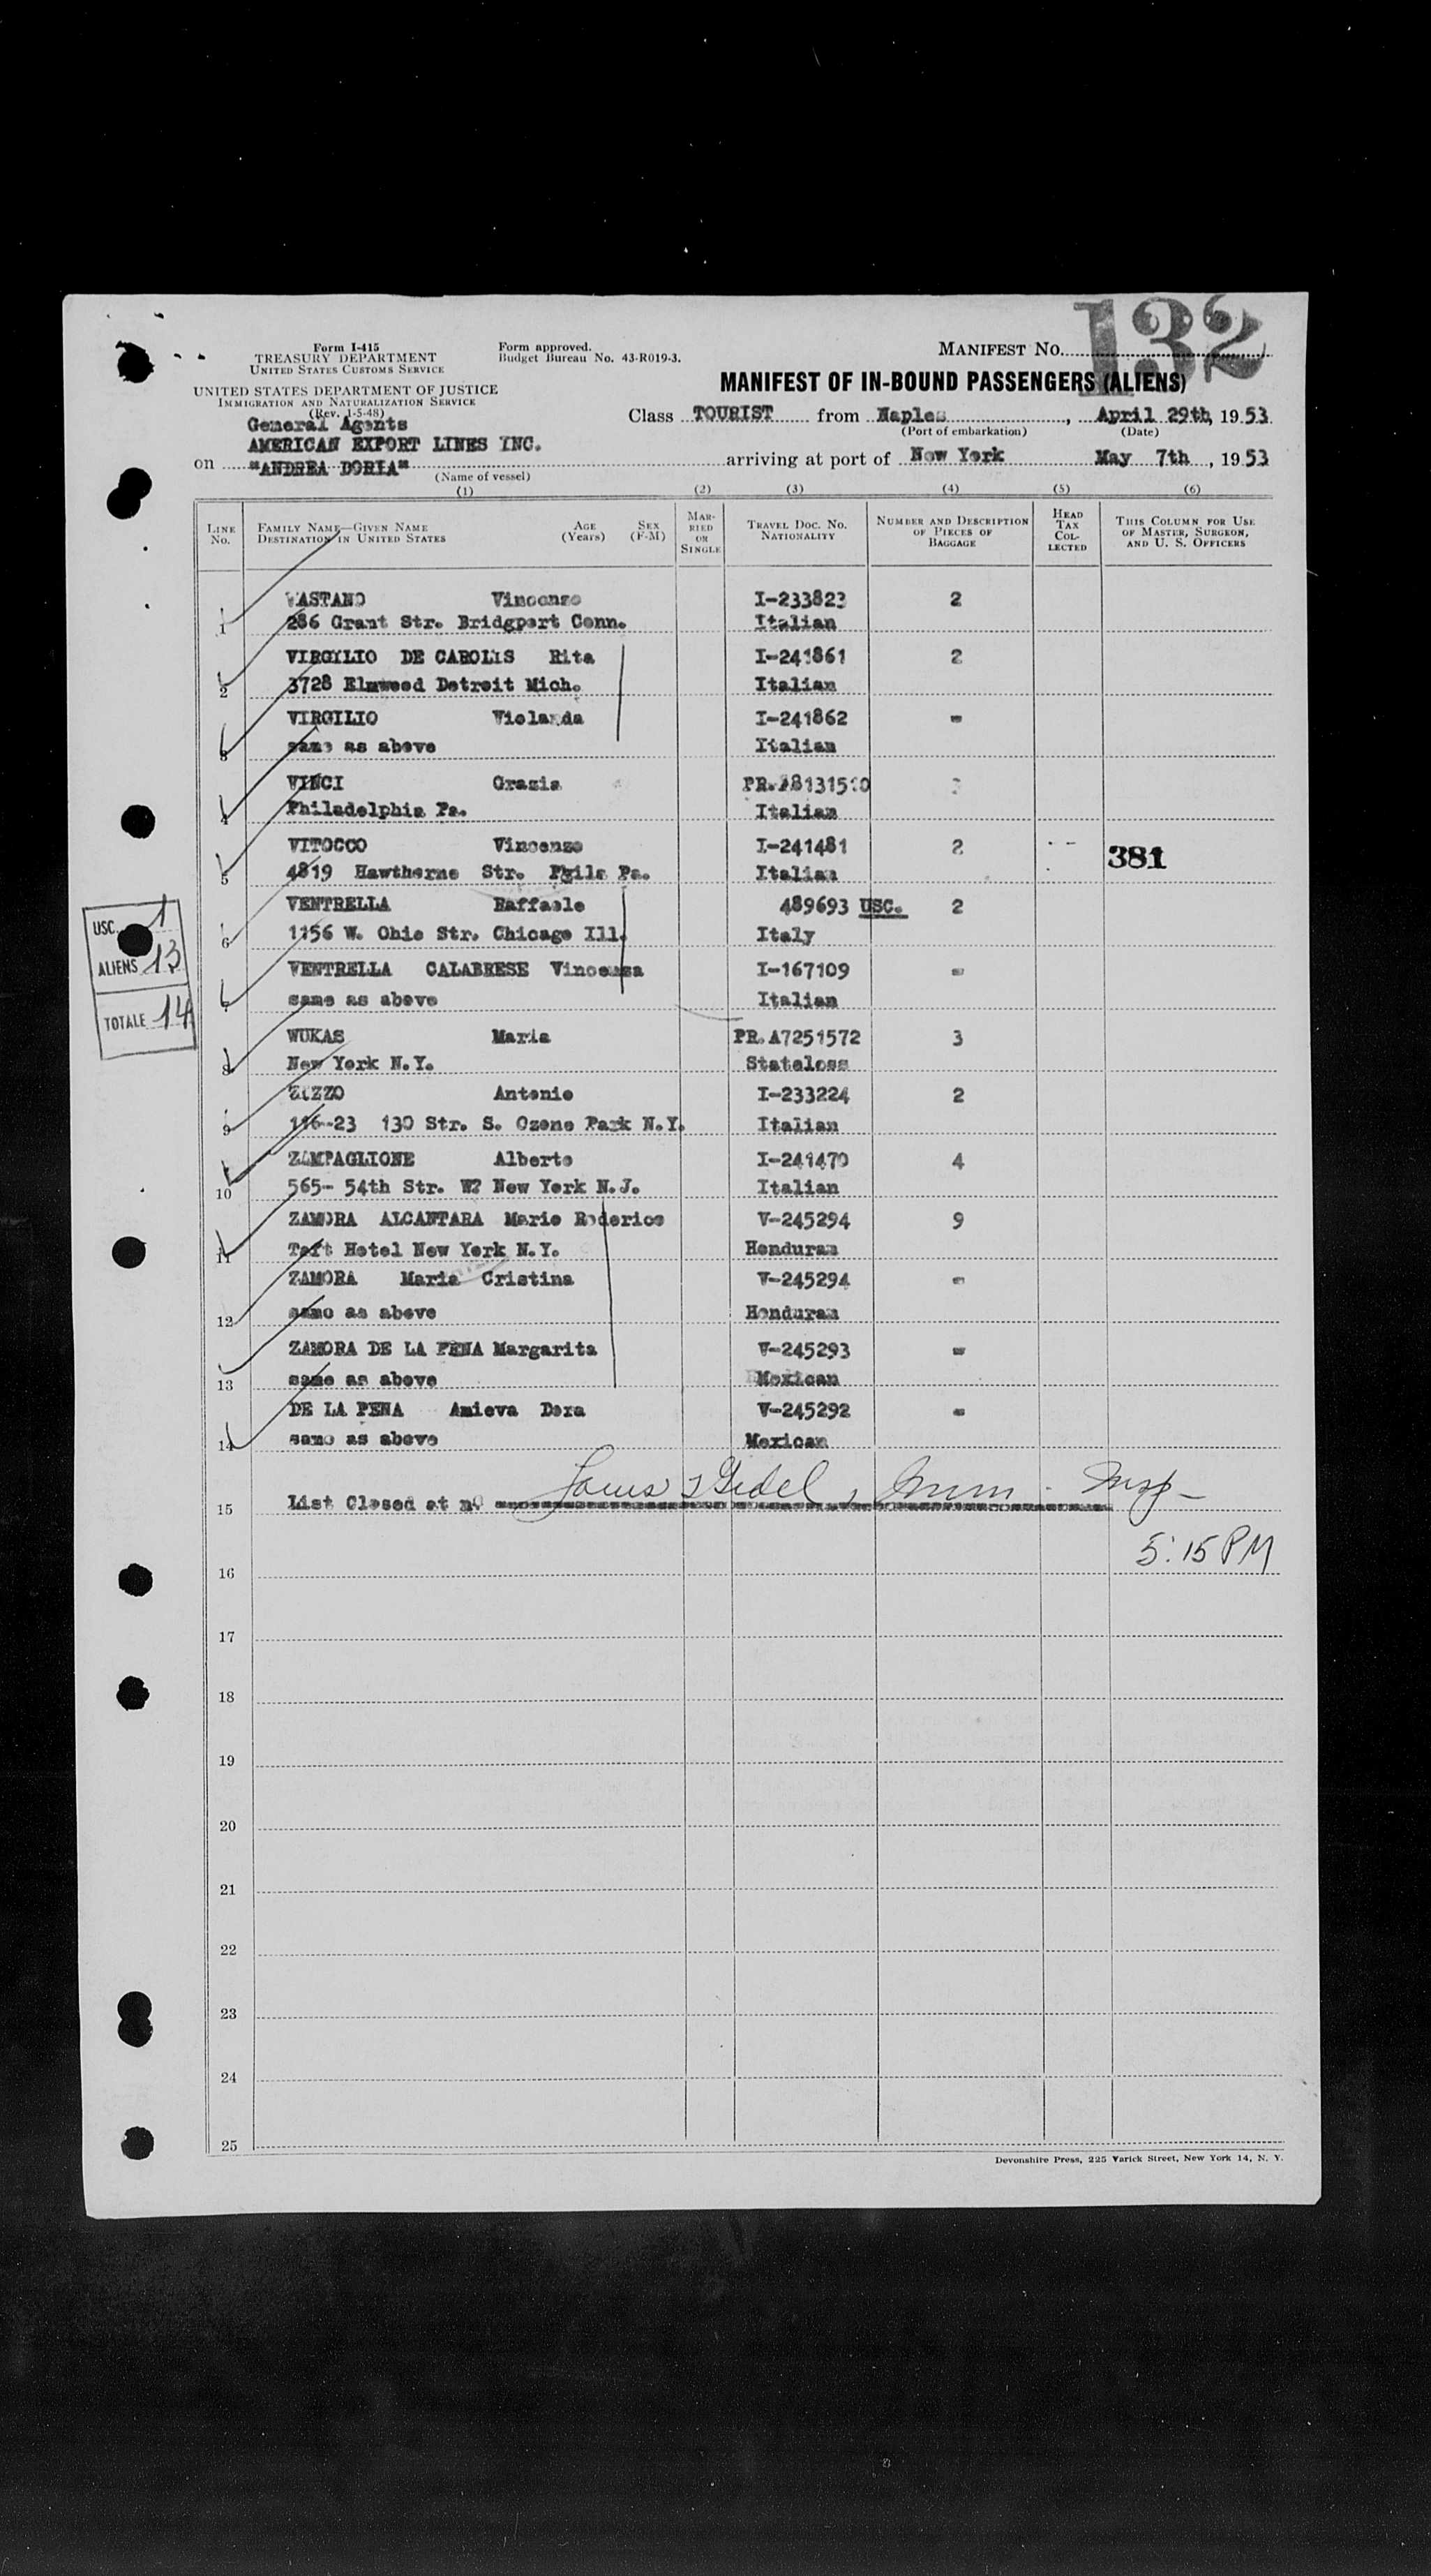 132
Form I-415
TREASURY DEPARTMENT
UNITED STATES CUSTOMS SERVICE
UNITED STATES DEPARTMENT OF JUSTICE
IMMIGRATION AND NATURALIZATION SERVICE
(Rev. 1-5-48)
Form approved.
Budget Bureau No. 43-R019-3.
MANIFEST NO.
MANIFEST OF IN-BOUND PASSENGERS (ALIENS)
General Agents
AMERICAN EXPORT LINES INC.
Class TOURIST from Naples, April 29th, 1953
(Port of embarkation) (Date)
on "ANDREA DORIA" arriving at port of New York May 7th, 1953
(Name of vessel)
(1) (2) (3) (4) (5) (6)
LINE NO. FAMILY NAME—GIVEN NAME DESTINATION IN UNITED STATES AGE (Years) SEX (F-M) MARRIED OR SINGLE TRAVEL DOC. NO. NATIONALITY NUMBER AND DESCRIPTION OF PIECES OF BAGGAGE HEAD TAX COLLECTED THIS COLUMN FOR USE OF MASTER, SURGEON, AND U. S. OFFICERS
VASTANO Vincenzo I-233823 2
1 286 Grant Str. Bridgport Conn. Italian
VIRGILIO DE CAROLIS Rita I-241861 2
2 3728 Elmweed Detroit Mich. Italian
VIRGILIO Violanda I-241862 -
3 same as above Italian
VINCI Grazia
4 Philadelphia Pa. Italian
VITOCCO Vincenzo I-241481 2 381
5 4819 Hawthorne Str. Pgila Pa. Italian
VENTRELLA Raffaele 489693 USC. 2
6 1156 W. Ohio Str. Chicago Ill. Italy
VENTRELLA CALABRESE Vincenza I-167109 -
7 same as above Italian
WUKAS Maria PR.A7251572 3
8 New York N.Y. Stateless
ZUZZO Antonio I-233224 2
9 116-23 130 Str. S. Ozone Park N.Y. Italian
ZAMPAGLIONE Alberto I-241470 4
10 565- 54th Str. W? New York N.J. Italian
ZAMORA ALCANTARA Mario Roderico V-245294 9
11 Taft Hotel New York N.Y. Honduran
ZAMORA Maria Cristina V-245294 -
12 same as above Honduran
ZAMORA DE LA PENA Margarita V-245293 -
13 same as above Mexican
DE LA PENA Amieva Dora V-245292 -
14 same as above Mexican
15 List Closed at nº
5:15 PM
16
17
18
19
20
21
22
23
24
25
USC. 1
ALIENS 13
TOTALE 14
Devonshire Press, 225 Varick Street, New York 14, N. Y.